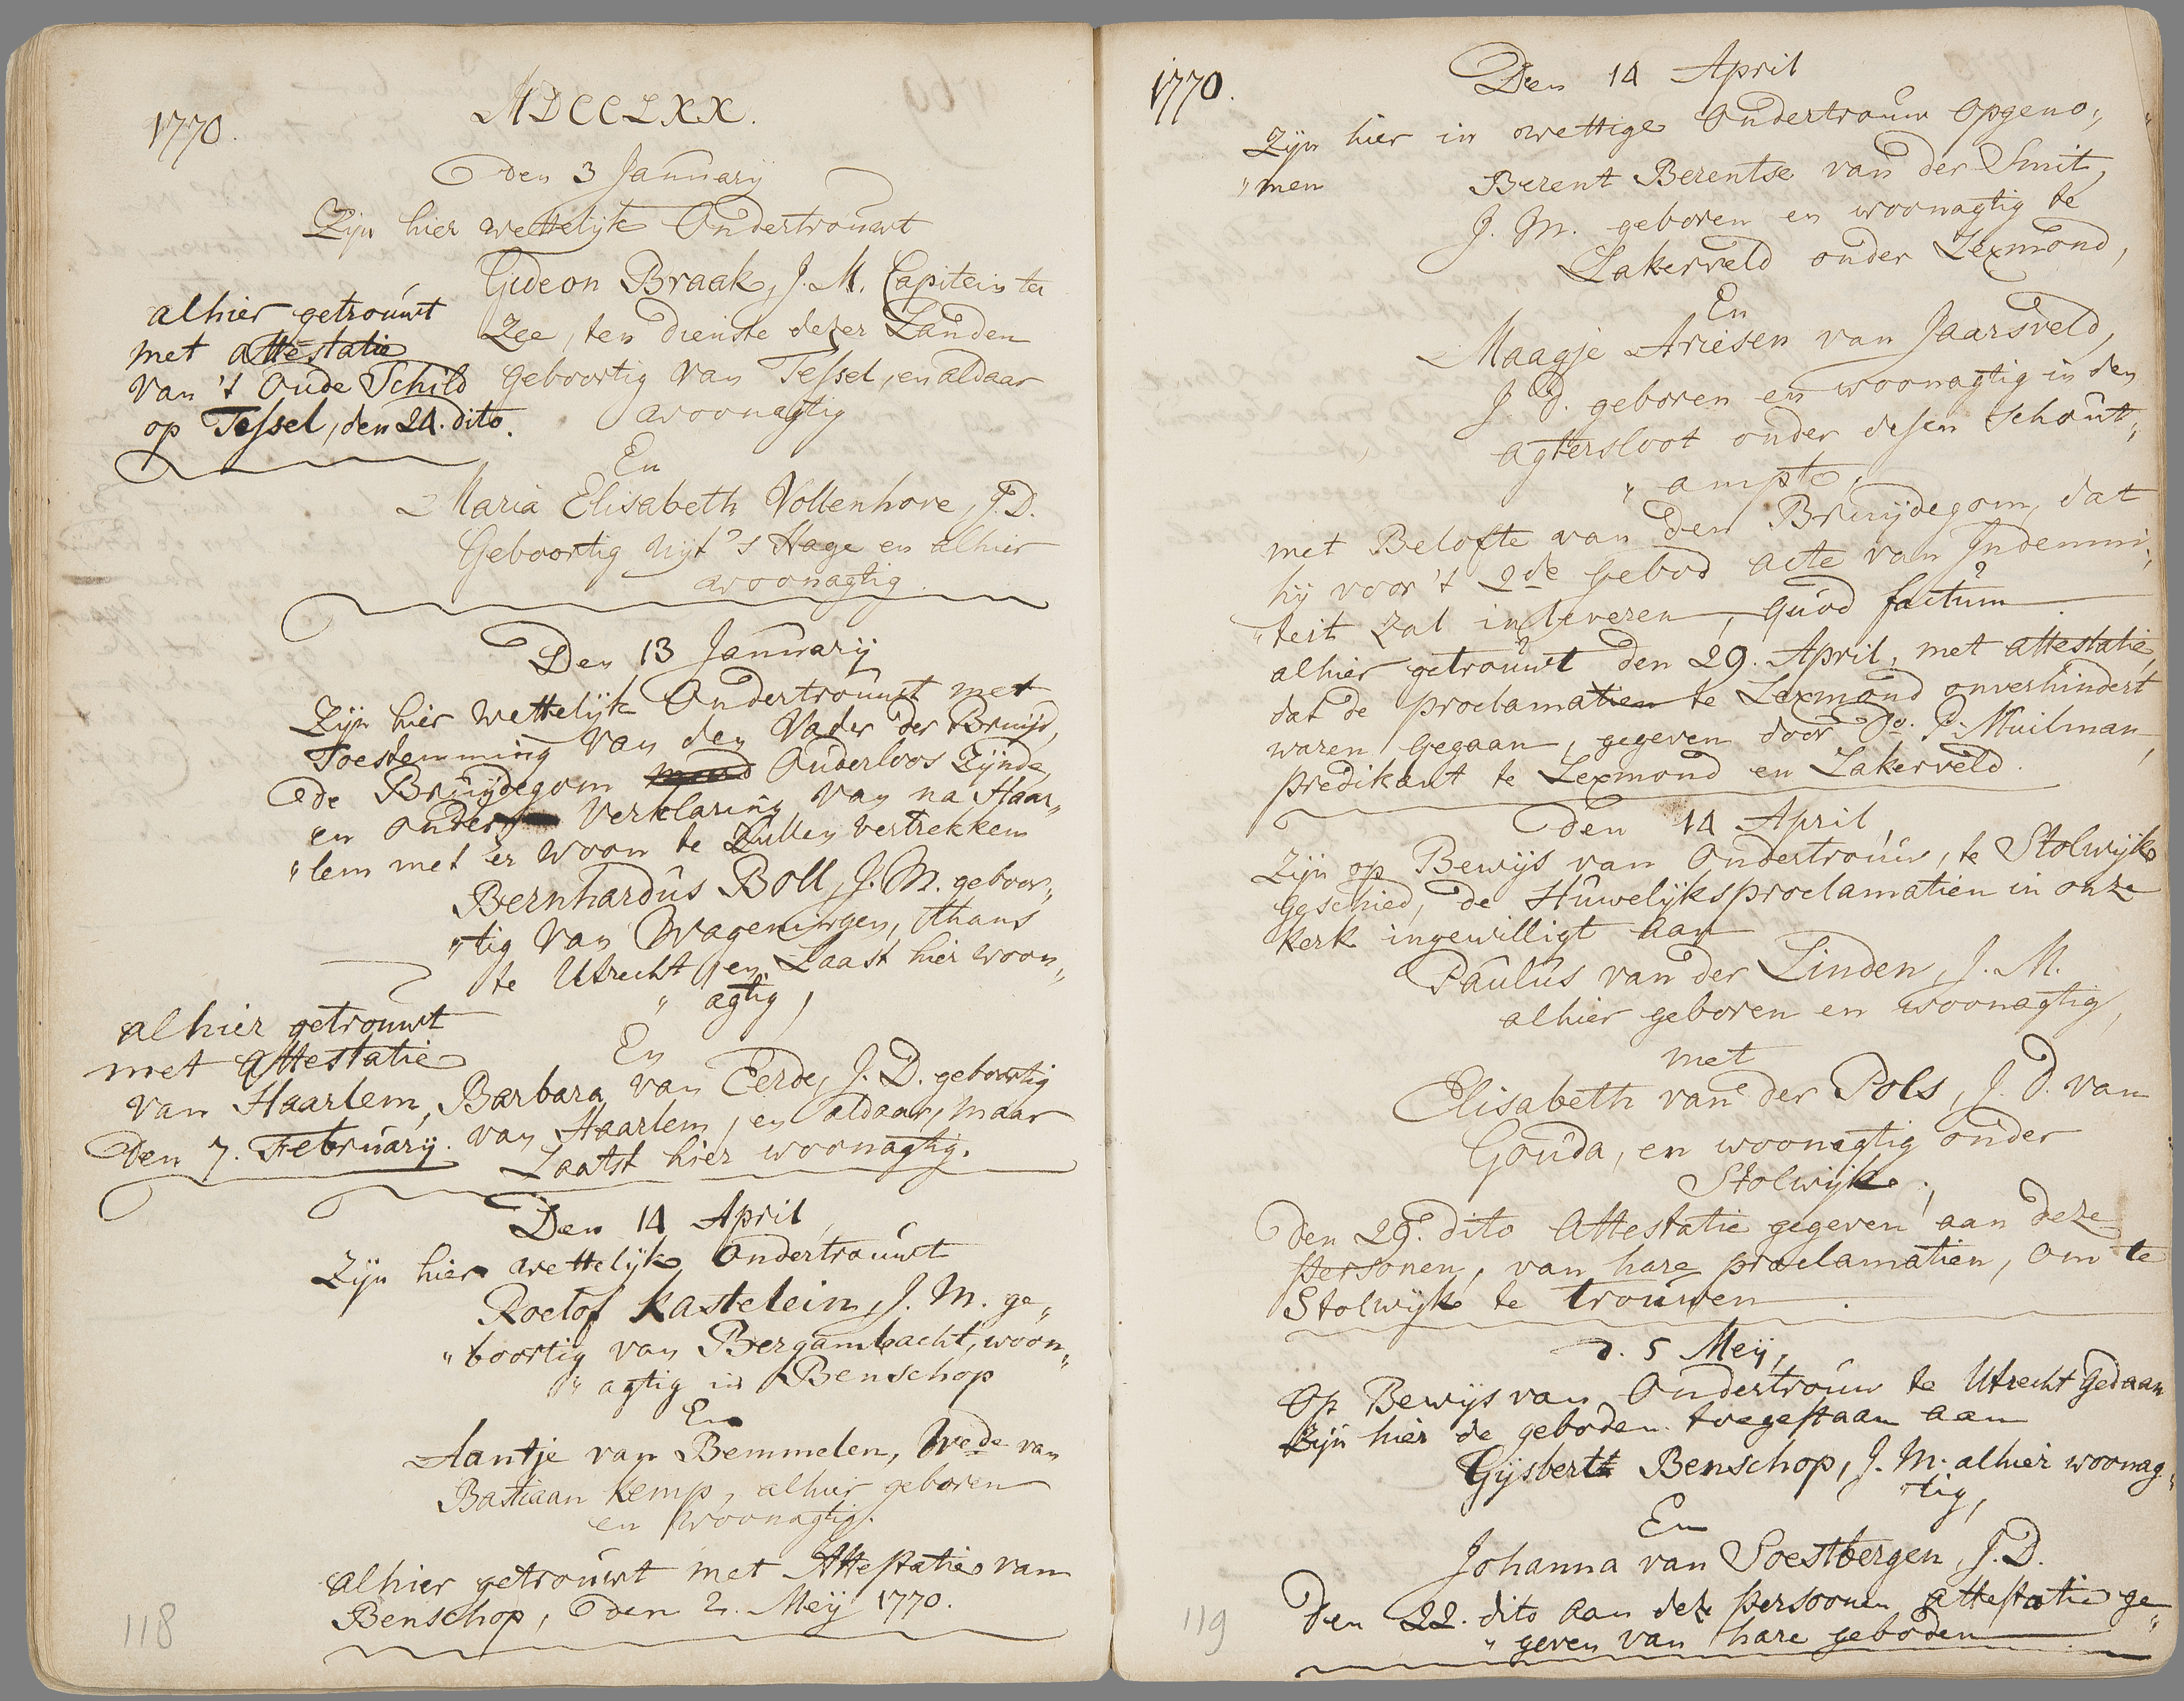 1770.
MDCCLXX.
den 3 January
Zijn hier wettelijk Ondertrouwt
Gideon Braak, J. M. Capitein ter
Zee, ten dienste dezer Landen
Geboortig van Tessel, en aldaar
woonagtig
alhier getrouwt
met attestatie
van 't Oude Schild
op Tessel, den 24. dito.
En
Maria Elisabeth Vollenhove, J. D.
Geboortig uijt 's Hage en alhier
woonagtig.
Den 13 January
Zijn hier Wettelijk Ondertrouwt met
Toestemming van den Vader der Bruijd,
de Bruijdegom Ouderloos Zijnde,
en onder Verklaring van na Haar„
„lem met er woon te Zullen vertrekken
Bernhardus Boll, J. M. geboor„
„tig van Wageningen, thans
te Utrecht, en Laast hier woon„
„agtig,
En
Barbara van Eerde, J. D. geboortig
van Haarlem, en aldaar, maar
Laatst hier woonagtig.
alhier getrouwt
met attestatie
van Haarlem,
Den 7. February.
Den 14 April,
Zijn hier wettelijk Ondertrouwt
Roelof Kastelein, J. M. ge„
„boortig van Bergambacht, woon„
„agtig in Benschop
En
Aantje van Bemmelen, Wede van
Bastiaan Kemp, alhier geboren
en woonagtig.
alhier getrouwt met Attestatie van
Benschop, den 2. Meij 1770.
118
1770.
Den 14 April
Zijn hier in wettige Ondertrouw opgeno„
„men
Berent Berentse van der Smit,
J. M. geboren en woonagtig te
Lakerveld onder Lexmond,
En
Maagje Ariesen van Jaarsveld,
J. d. geboren en woonagtig in den
agtersloot onder desen Schout„
„ampte,
met Belofte van den Bruijdegom, dat
hij voor 't 2de Gebod acte van Indemni„
„teit zal inleveren, quod factum.
alhier getrouwt den 29. April, met attestatie,
dat de proclamatien te Lexmond onverhindert
waren gegaan, gegeven door Do. P. Muilman,
predikant te Lexmond en Lakerveld.
den 14 April,
Zijn op Bewijs van Ondertrouw, te Stolwijk
Geschied, de Huwelijksproclamatien in onze
Kerk ingewilligt aan
Paulus van der Linden, J. M.
alhier geboren en woonagtig,
met
Elisabeth van der Pols, J. D. van
Gouda, en woonagtig onder
Stolwijk.
den 29. dito Attestatie gegeven aan deze
Personen, van hare proclamatien, om te
Stolwijk te trouwen.
d. 5 Meij,
Op Bewijs van Ondertrouw te Utrecht gedaan
Zijn hier de geboden toegestaan aan
Gijsbert Benschop, J. M. alhier woonag„
„tig,
En
Johanna van Soestbergen, J. D.
den 22. dito aan deze Persoonen attestatie ge„
„geven van hare geboden
119